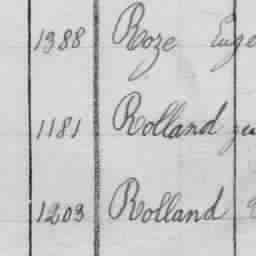 1388 Roze Euge
1181 Rolland
1203 Rolland